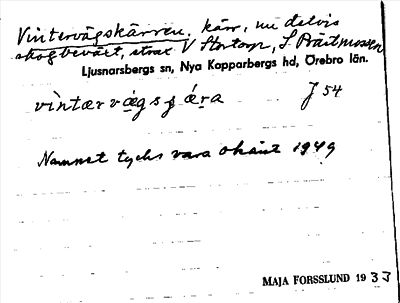 Vintervägskärren. kärr, nu delvis
skogbeväxt, strax V Stortorp, S Prästmossen
Ljusnarsbergs sn, Nya Kopparbergs hd, Örebro län.
vìntærvǽgsʃǽra J 54
Namnet tycks vara okänt 1949
MAJA FORSSLUND 1933